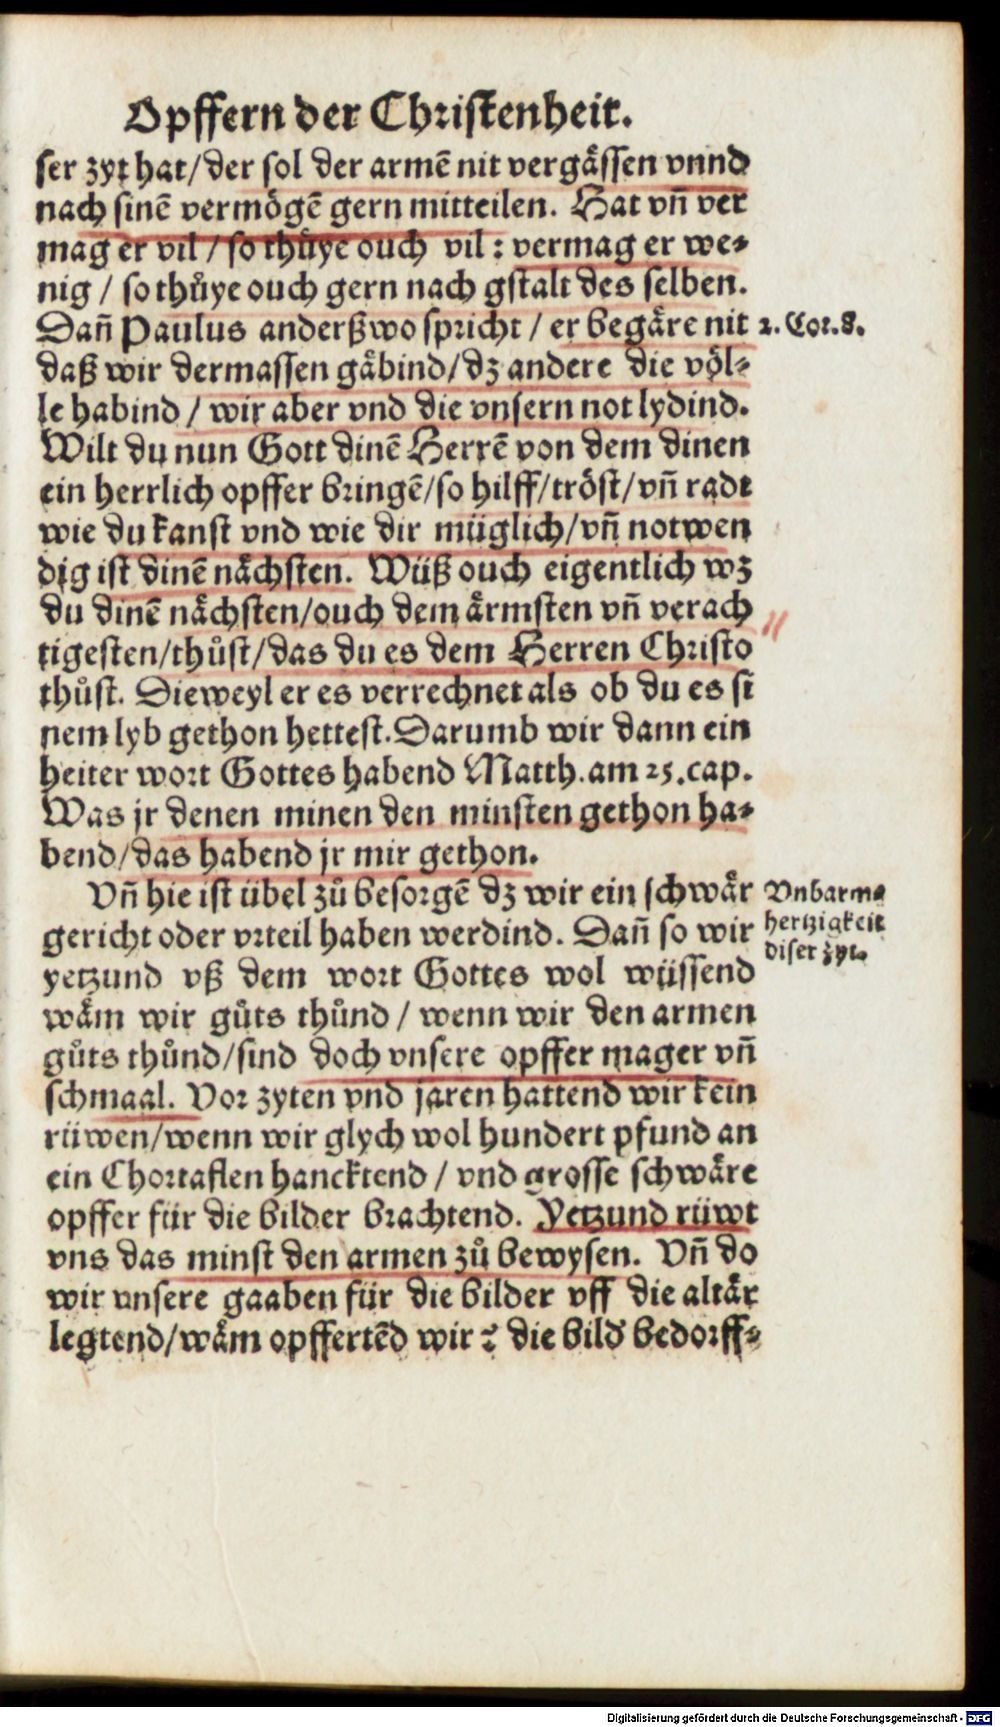 Opffern der Christenheit.
ser zyt hat/der sol der armē nit vergässen vnnd
nach sinē vermögē gern mitteilen. Hat vñ ver
mag er vil / so thuͤye ouch vil : vermag er we⸗
nig / so thuͤye ouch gern nach gstalt des selben.
Dañ Paulus anderßwo spricht / er begäre nit
2. Cor. 8.
daß wir dermassen gäbind/dz andere die völ⸗
le habind / wir aber vnd die vnsern not lydind.
Wilt du nun Gott dinē Herrē von dem dinen
ein herrlich opffer bringē/so hilff/tröst/vñ radt
wie du kanst vnd wie dir müglich/vñ notwen
dig ist dinē nächsten. Wüß ouch eigentlich wz
du dinē nächsten/ouch dem ärmsten vñ verach
tigesten/thuͦst/das du es dem Herren Christo
thuͦst. Dieweyl er es verrechnet als ob du es si
nem lyb gethon hettest. Darumb wir dann ein
heiter wort Gottes habend Matth. am 25. cap.
Was jr denen minen den minsten gethon ha⸗
bend/das habend jr mir gethon.
Vñ hie ist übel zuͦ besorgē dz wir ein schwär
Vnbarm⸗
hertzigkeit
diser zyt.
gericht oder vrteil haben werdind. Dañ so wir
yetzund vß dem wort Gottes wol wüssend
wäm wir guͦts thuͦnd / wenn wir den armen
guͦts thuͦnd/sind doch vnsere opffer mager vñ
schmaal. Vor zyten vnd jaren hattend wir kein
rüwen/wenn wir glych wol hundert pfund an
ein Chortaflen hancktend / vnd grosse schwäre
opffer für die bilder brachtend. Yetzund rüwt
vns das minst den armen zuͦ bewysen. Vñ do
wir vnsere gaaben für die bilder vff die altär
legtend/wäm opffertēd wir? die bild bedorff⸗
Digitalisierung gefördert durch die Deutsche Forschungsgemeinschaft - DFG